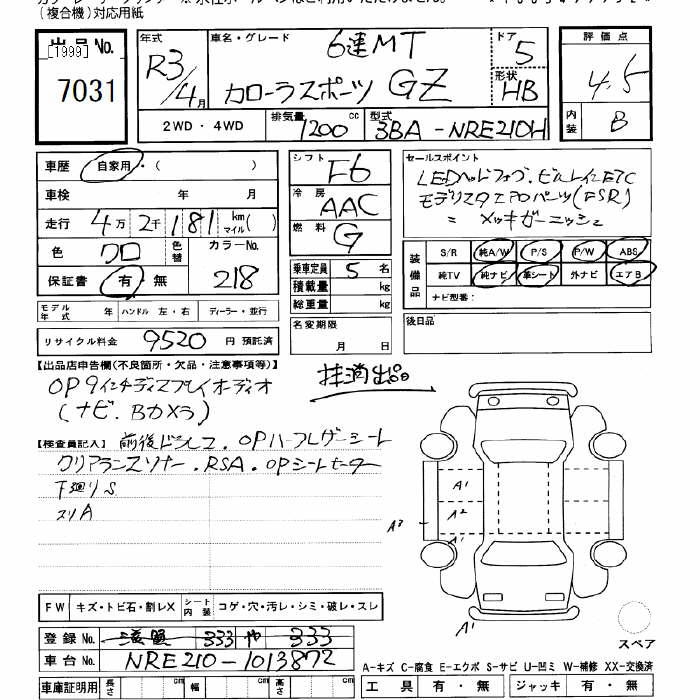 (複合機)対応用紙
出品No.
[1999]
7031
年式 R3/4月
車名・グレード 6速MT
カローラスポーツ GZ
ドア 5
形状 HB
評価点
4.5
内装 B
2WD・4WD
排気量 1200 cc
型式 3BA-NRE210H
車歴 自家用・( )
車検 年 月
走行 4万2千181 km マイル( )
色 クロ 色替 カラーNo. 218
保証書 有・無
シフト F6
冷房 AAC
燃料 G
乗車定員 5 名
積載量 kg
総重量 kg
セールスポイント
LEDヘッドフォグ、ビルトインETC
モデリスタエアロパーツ(FSR)
= メッキガーニッシュ
装備品
S/R 純A/W P/S P/W ABS
純TV 純ナビ 革シート 外ナビ エアB
ナビ型番:
モデル年式 年 ハンドル 左・右 ディーラー・並行
名変期限
月 日
後日品
リサイクル料金 9520 円 預託済
【出品店申告欄(不良箇所・欠品・注意事項等)】
OP9インチディスプレイオーディオ
(ナビ、Bカメラ)
抹消出品
【検査員記入】 前後ドラレコ、OPハーフレザーシート
クリアランスソナー、RSA、OPシートヒーター
下廻りS
スリA
A1
A2
A3
A1
A1
FW キズ・トビ石・割レX シート内装 コゲ・穴・汚レ・シミ・破レ・スレ
スペア
登録No. 333 や 333
車台No. NRE210-1013872
A-キズ C-腐食 E-エクボ S-サビ U-凹ミ W-補修 XX-交換済
車庫証明用 長さ cm 幅 cm 高さ cm
工具 有・無 ジャッキ 有・無